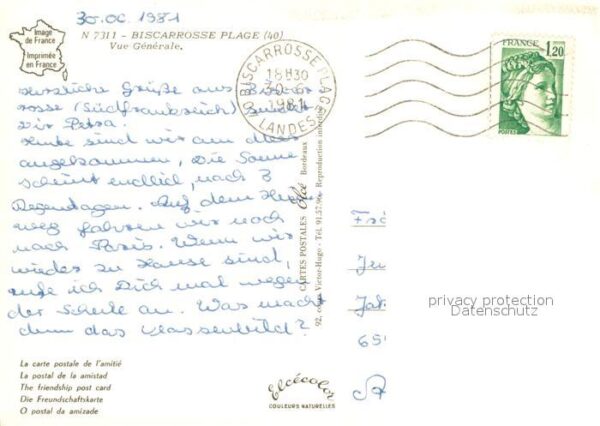 30.oc. 1981
Image
de France
Imprimée
en France
N 7311 - BISCARROSSE PLAGE (40)
Vue Générale.
Herzliche Grüße aus Biscar-
rosse (Südfrankreich) sendet
Dir Petra.
Heute sind wir am Meer
angekommen, Die Sonne
scheint endlich, nach 3
Regentagen. Auf dem
weg fahren wir noch
nach Paris. Wenn wir
wieder zu Hause sind,
rufe ich Dich mal wegen
der Schule an. Was macht
denn das Klassenbild?
40 BISCARROSSE PLAGE
18H30
30-6
1981
LANDES
FRANCE
1,20
POSTES
CARTES POSTALES Elcé Bordeaux
92, cours Victor-Hugo - Tél. 91.57.96 Reproduction interdite
65
privacy protection
Datenschutz
La carte postale de l'amitié
La postal de la amistad
The friendship post card
Die Freundschaftskarte
O postal da amizade
Elcécolor
COULEURS NATURELLES